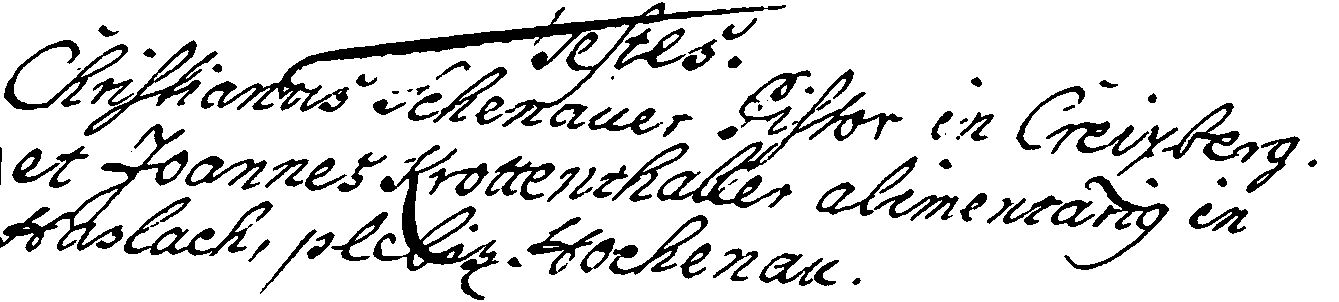 Testes.
Christianus Schenauer Pistor in Creixberg.
et Joannes Krottenthaller alimentarig in
Haslach, plebiz. Hochenau.